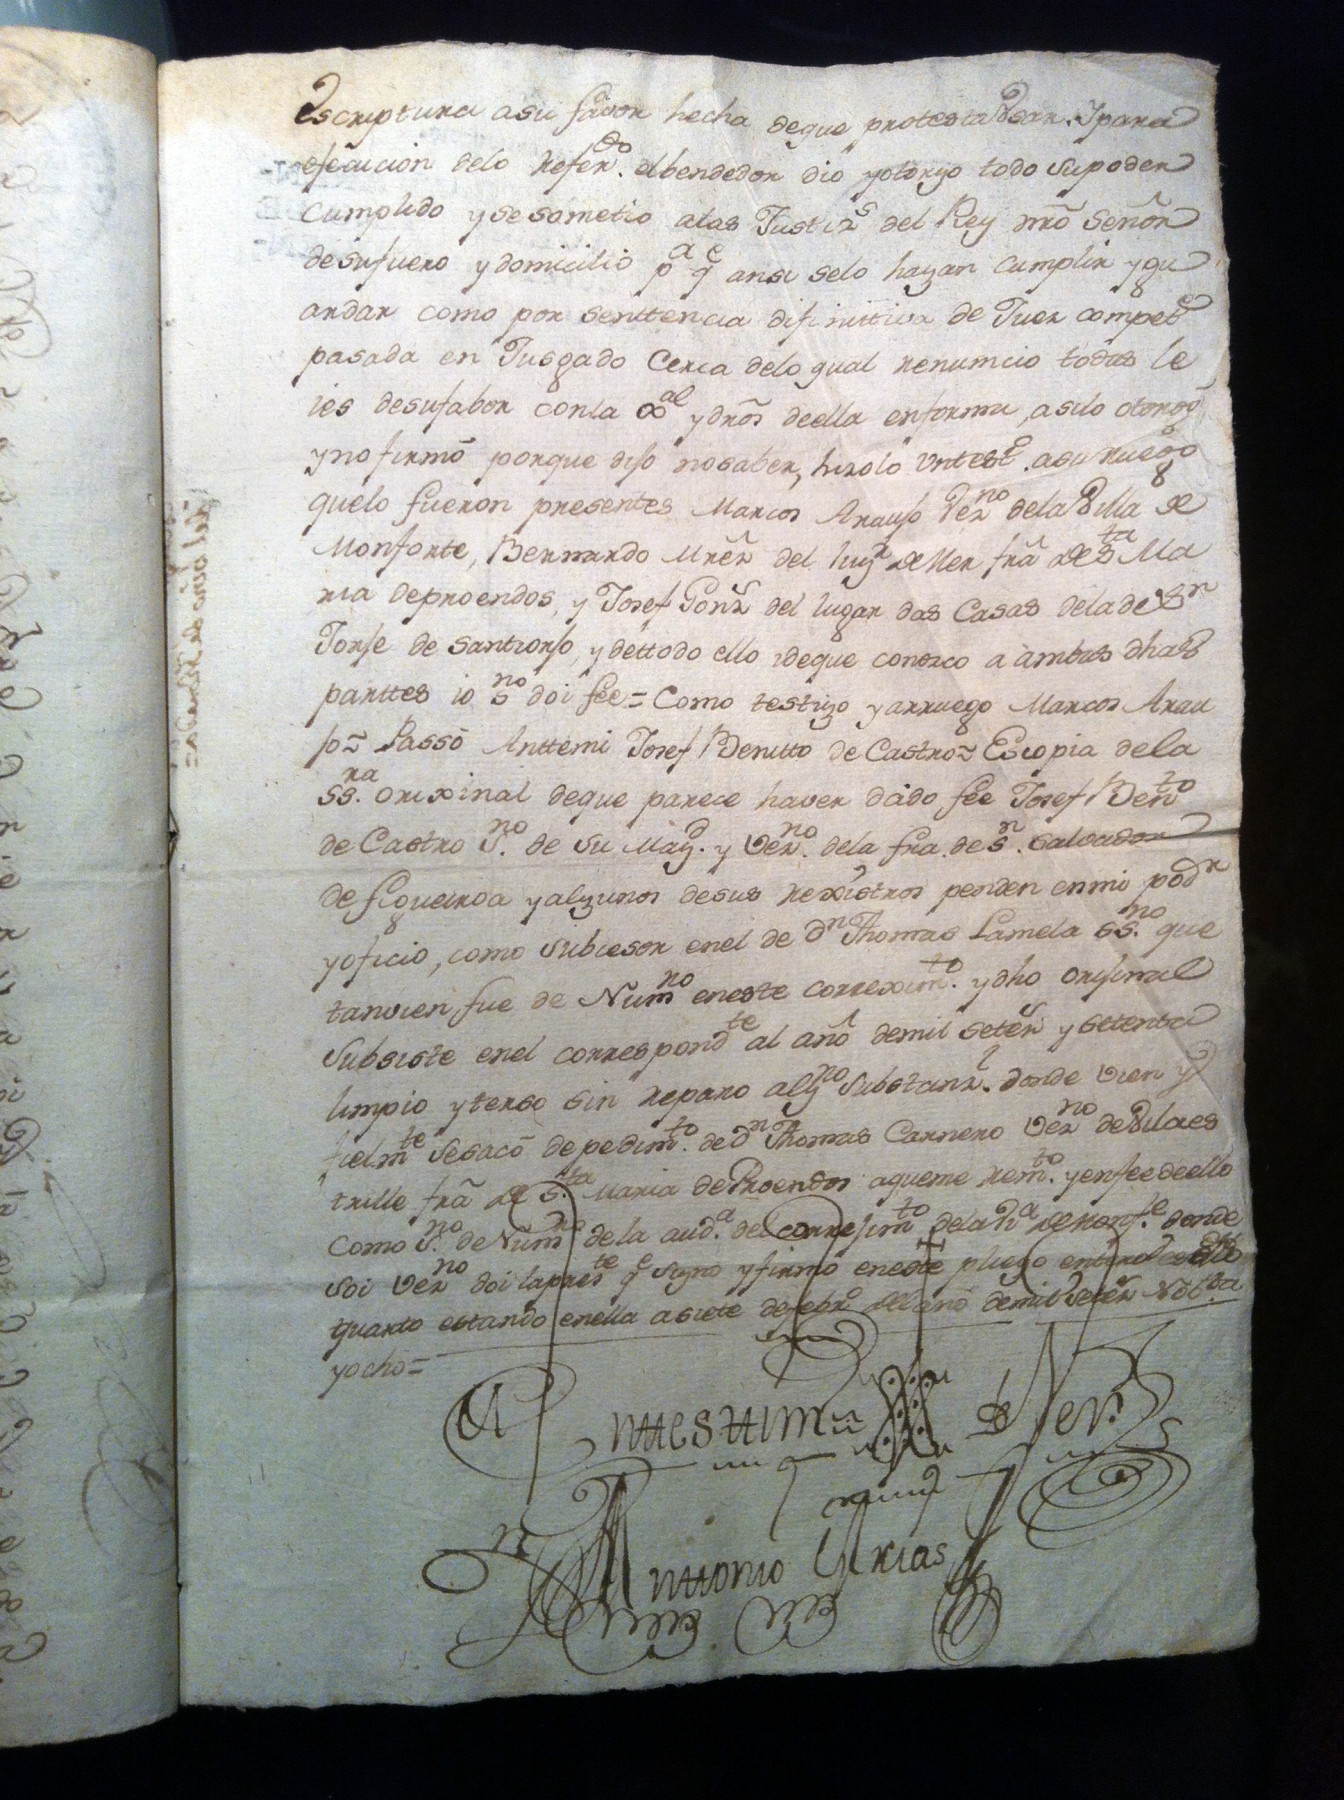 escriptura asu favor hecha deque protesta Usar. Y para
efecucion delo Refer.do elbendedor dio yotorgo todo supoder
Cumplido yse sometio alas Justizs del Rey nrõ Señor
desufuero ydomicilio pa qe ansi selo hagan Cumplir ygu
ardar como por senttencia difinittiva de Juez compete
pasada en Jusgado Cerca delo qual renuncio todas le
ies desufabor conla Gal ydrõs deella enforma, asilo otorgo
ynofirmó porque dijo nosaber, hizolo untestº. asu ruego
quelo fueron presentes Marcos Araujo Vezno dela Villa de
Monforte, Bernardo Mrẽz del lugr de Mer frã de Sta Ma
ria deproendos, y Josef Gonz del lugar das Casas delade Sn
Jorje de santiorjo, y dettodo ello ydeque conozco a ambas dhas
parttes io sno doi fee = Como testigo yarruego Marcos Arau
jo = Passó Anttemi Josef Benitto de Castro = Escopia dela
ss.ra orixinal deque parece haver dado fee Josef Benito
de Castro S.no de su Mag. y vezno. dela fra. de sn. Salvador
de figueiroa yalgunos desus rexistros penden enmi podr
yoficio, como subcesor enel de Dn Thomas Lamela ss.no que
tanvien fue de Numno eneste correximto. ydho orijinal
Subsiste enel correspondte al año demil seteẓ y setenta
limpio yterso sin reparo algno substanzl. donde vien y
fielmte sesacó depedimto. de Dn Thomas Carnero vezno de Vilaes
trille frã de S.ta Maria de Proendos aqueme remto. yenfeedeello
Como S.no de Numro de la audª. del correjimto dela Vª de Monfe. donde
soi vezno doi lapreste qe signo yfirmo eneste pliego entero
quarto estando enella asiete defebrº del año demil setez Nobta
yocho =
En ttesttimº de Ver.
Anttonio Arias